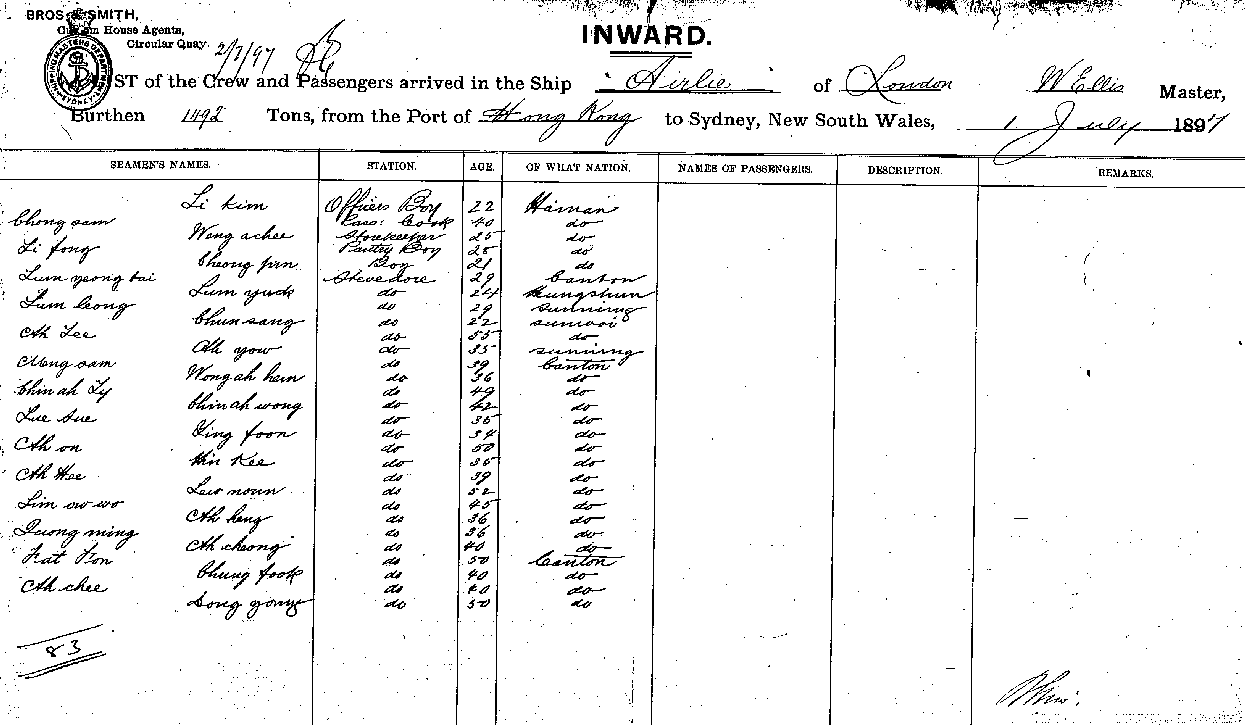 BROS & SMITH,
Custom House Agents,
Circular Quay.
2/7/97
INWARD.
LIST of the Crew and Passengers arrived in the Ship "Airlie" of London W Ellis Master,
Burthen 1492 Tons, from the Port of Hong Kong to Sydney, New South Wales, 1 July 1897
SEAMEN'S NAMES. STATION. AGE. OF WHAT NATION. NAMES OF PASSENGERS. DESCRIPTION. REMARKS.
Li Kim Officers Boy 22 Hainan
Chong sam Pass: Cook 40 do
Wong achee Storekeeper 25 do
Li fong Pantry Boy 28 do
Cheong pin Boy 21 do
Lum yeong tai Stevedore 29 Canton
Lum yuck do 24
Lum leong do 29 sunning
Chun sang do 22 sunwoi
Ah Lee do 55 do
Ah yow do 35 sunning
sam do 39 Canton
Wong ah hem do 36 do
Chin ah Ly do 49 do
Chin ah wong do 42 do
Lue Sue do 35 do
Ling foon do 34 do
Ah on do 50 do
Hin Kee do 35 do
Ah Hee do 39 do
Lew noun do 52 do
Lim ow wo do 45 do
Ah heng do 36 do
Quong ming do 36 do
Ah cheong do 40 do
Kat Kon do 50 Canton
Chung fook do 40 do
Ah chee do 40 do
Song gong do 50 do
83